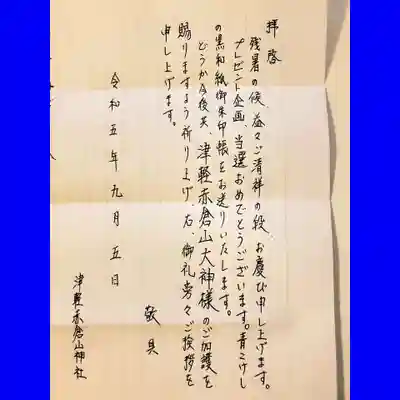 拝啓
残暑の候、益々ご清祥の段、お慶び申し上げます。
プレゼント企画、当選おめでとうございます。青こけし
の黒和紙御朱印帳をお送りいたします。
どうか今後共、津軽赤倉山大神様のご加護を
賜りますよう祈り上げ、右、御礼旁々ご挨拶を
申し上げます。
敬具
令和五年九月五日
津軽赤倉山神社